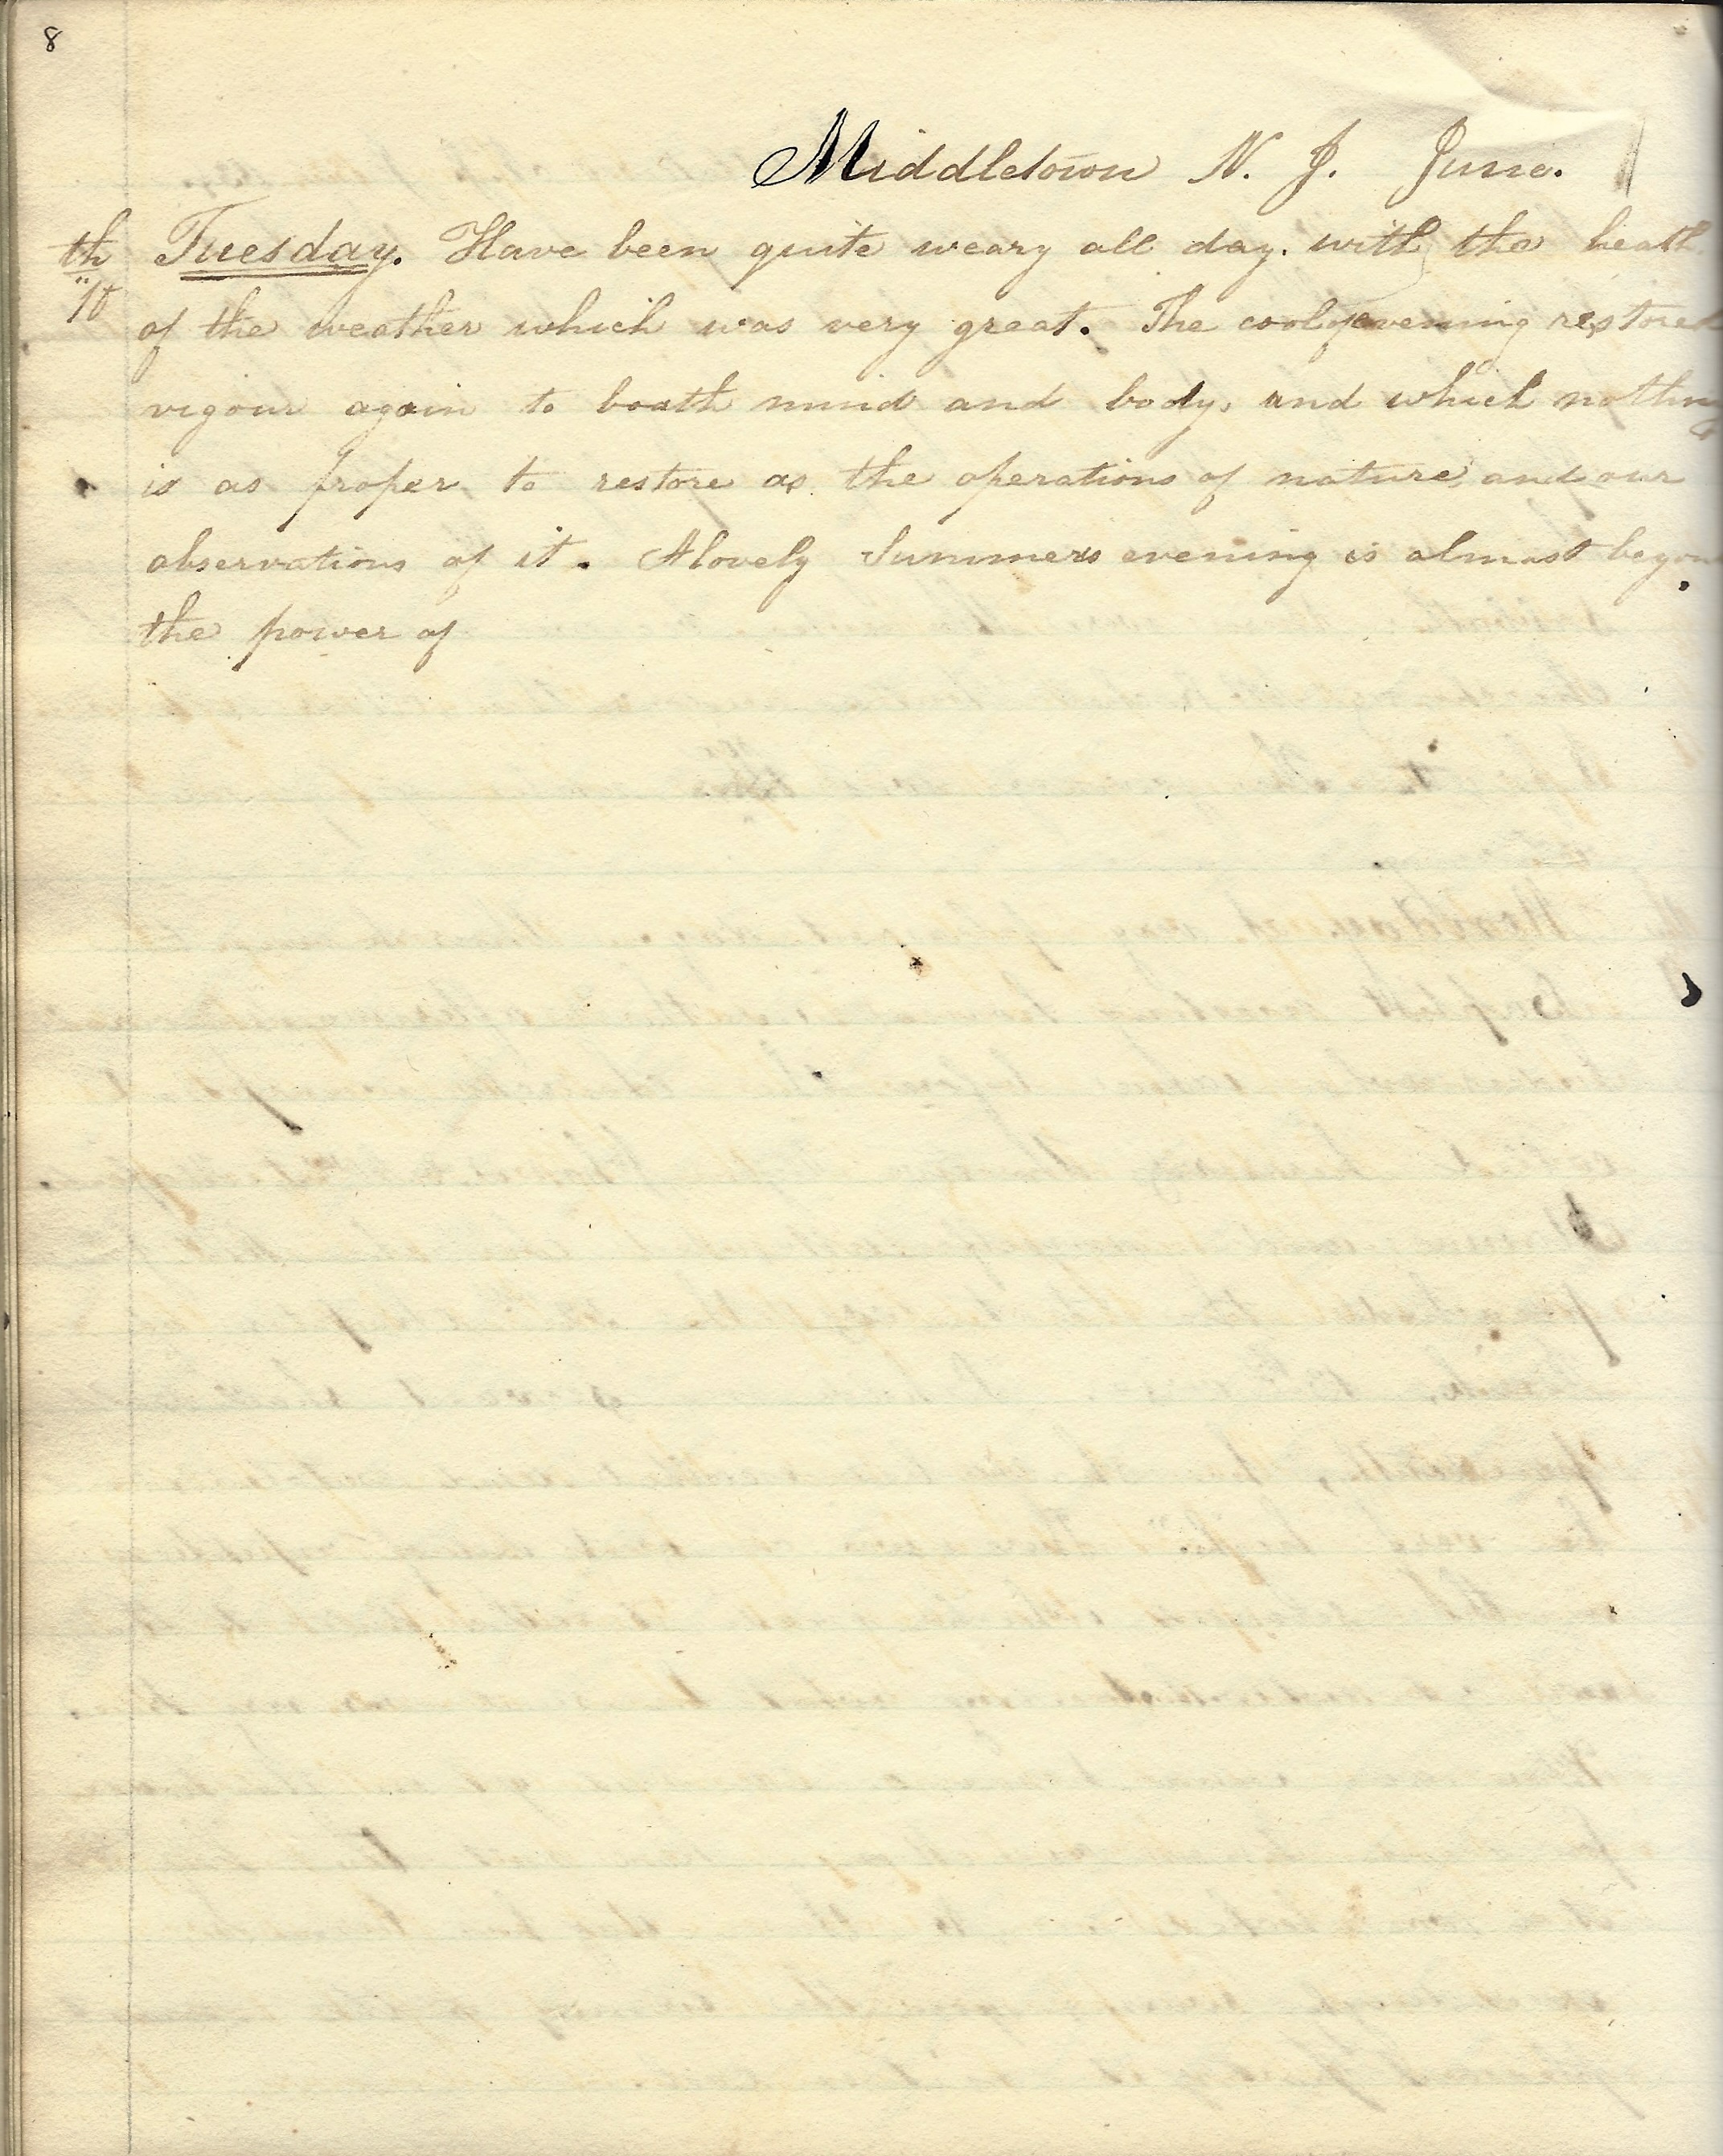 8
Middletown N. J. June.
th Tuesday. Have been quite weary all day. with the heath
of the weather which was very great. The cooly evening restored
vigour again to boath mind and body, and which nothing
is as proper to restore as the operations of nature and our
observations of it. A lovely Summers evening is almost beyond
the power of